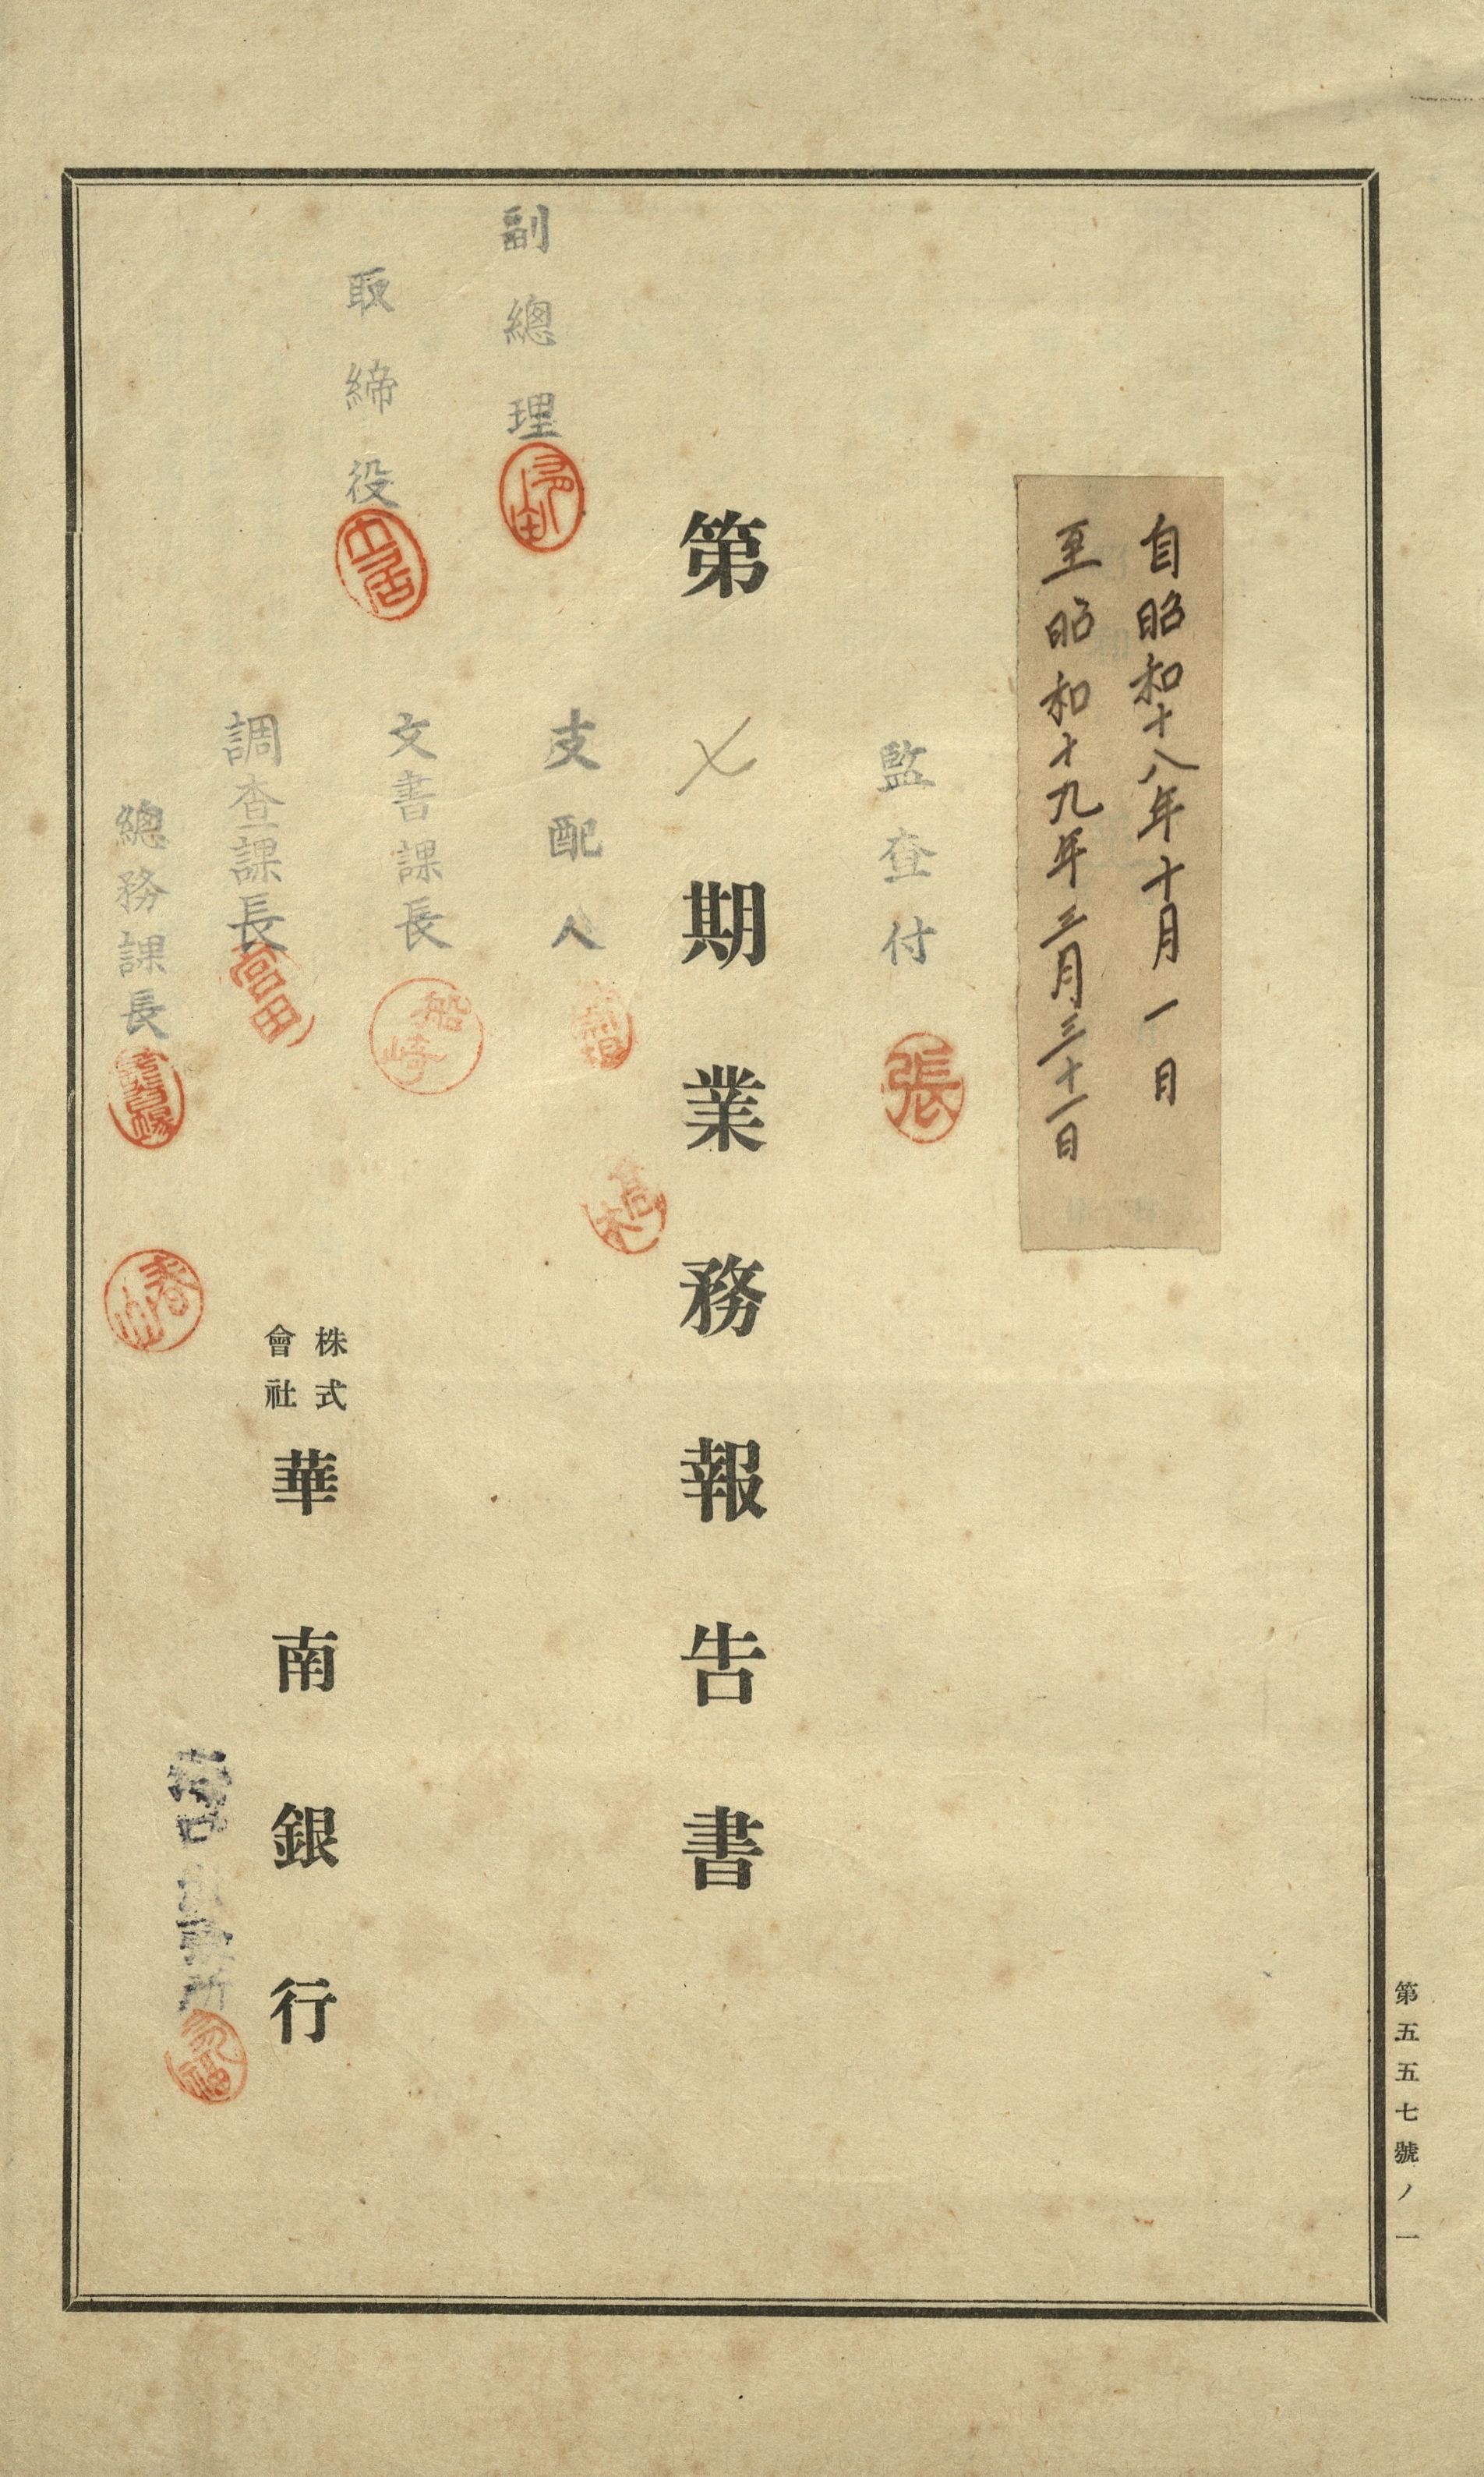 自昭和十八年十月一日
至昭和十九年三月三十一日
監查付
張
第七期業務報告書
副總理
支配人
取締役
文書課長
船崎
調查課長
富田
總務課長
春山
株式會社華南銀行
第五五七號ノ一